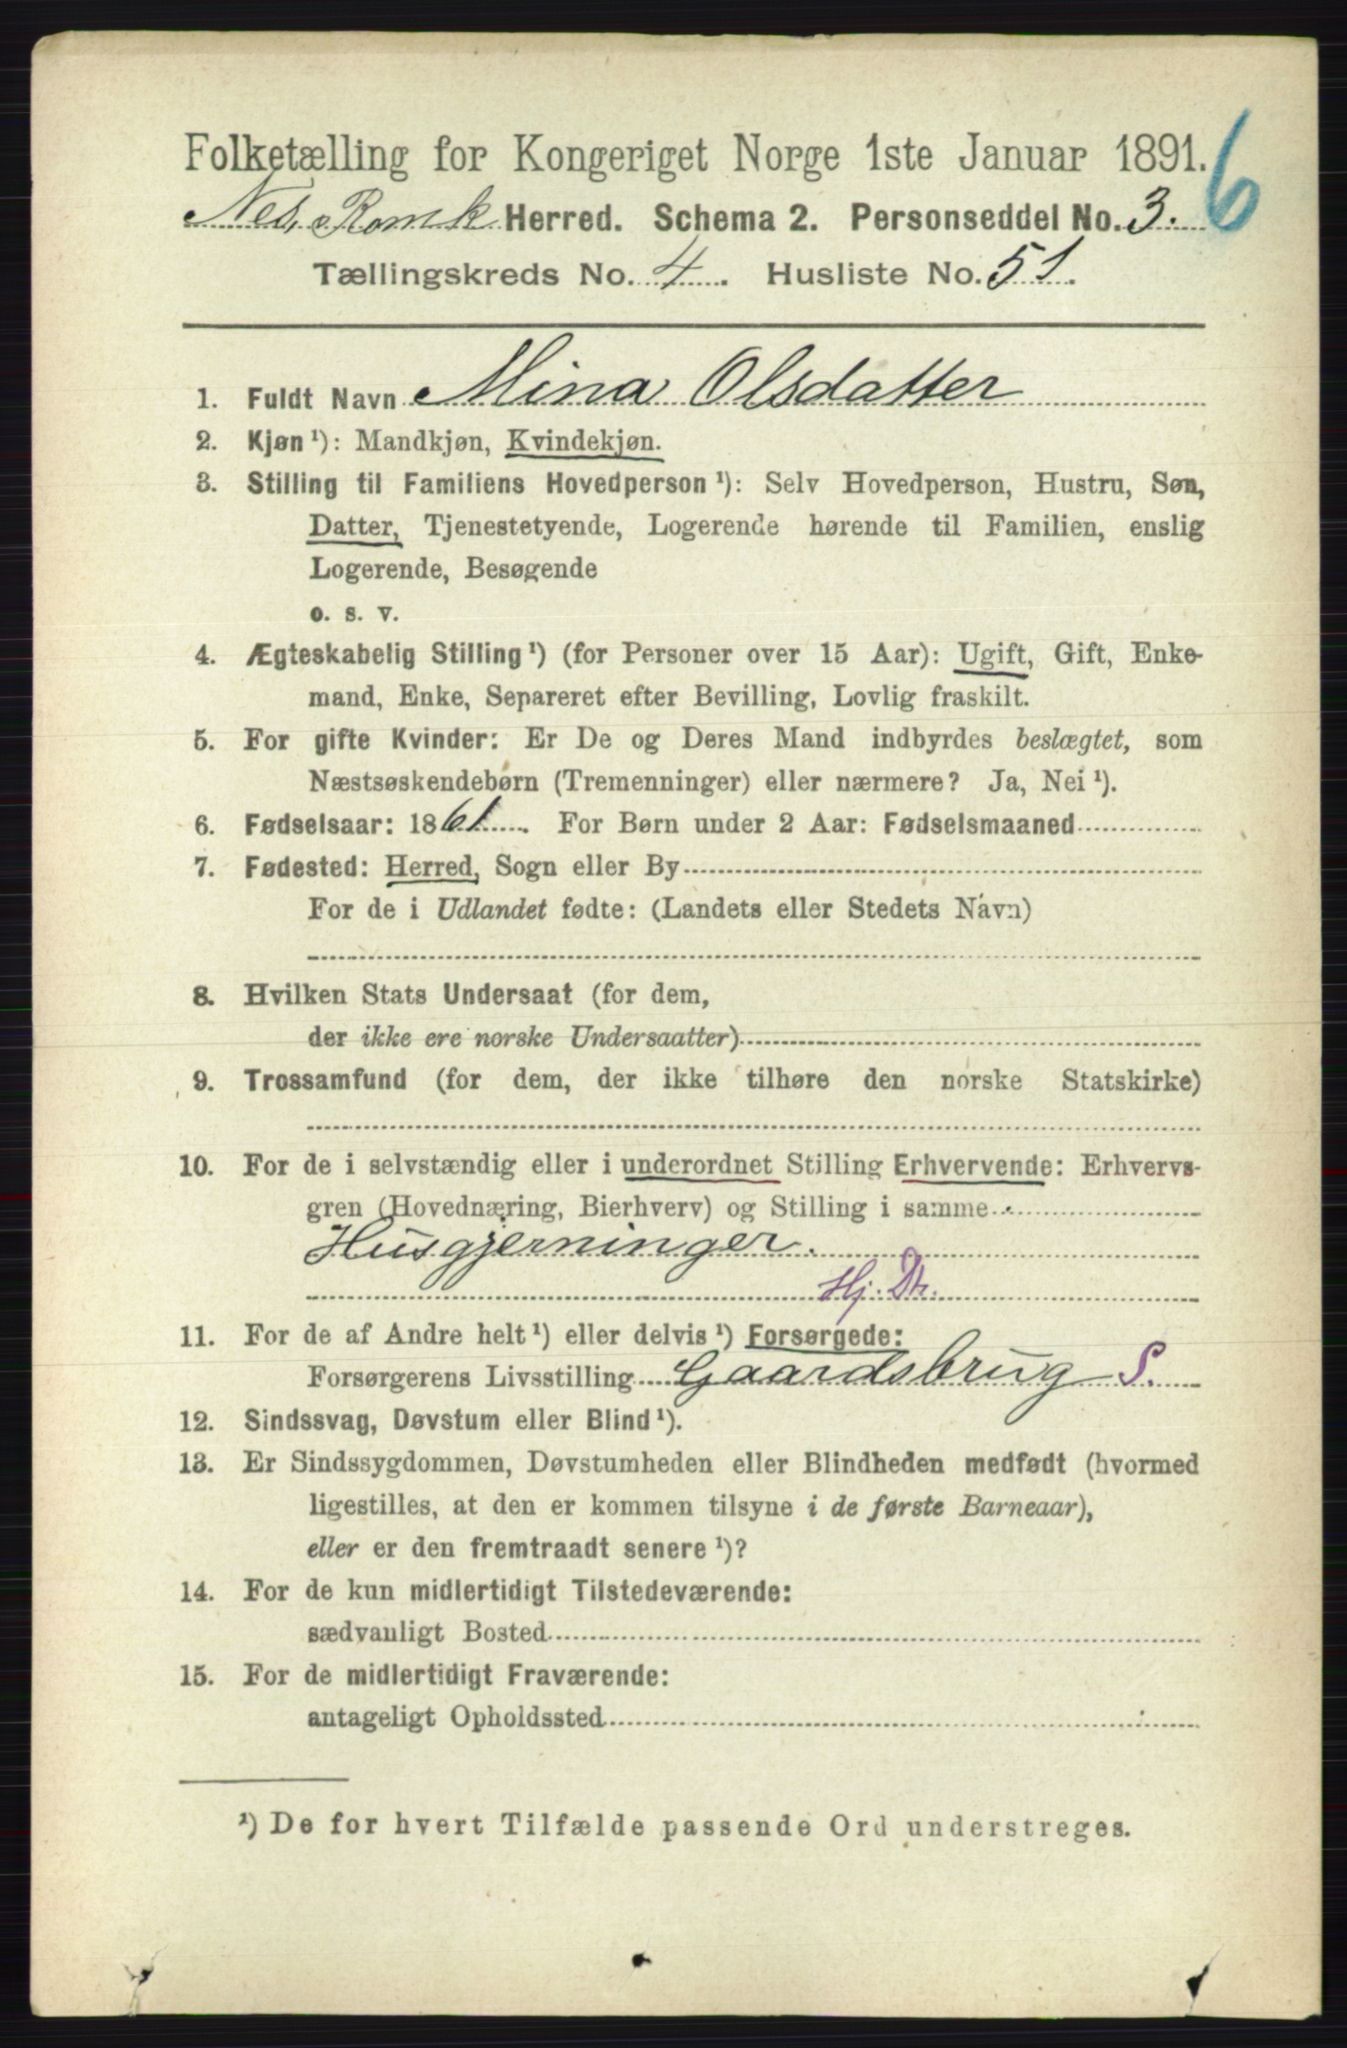 Folketælling for Kongeriget Norge 1ste Januar 1891.
6
Nes, Romk Herred. Schema 2. Personseddel No. 3.
Tællingskreds No. 4. Husliste No. 51.
1. Fuldt Navn Mina Olsdatter
2. Kjøn ¹): Mandkjøn, Kvindekjøn.
3. Stilling til Familiens Hovedperson ¹): Selv Hovedperson, Hustru, Søn,
Datter, Tjenestetyende, Logerende hørende til Familien, enslig
Logerende, Besøgende
o. s. v.
4. Ægteskabelig Stilling ¹) (for Personer over 15 Aar): Ugift, Gift, Enke-
mand, Enke, Separeret efter Bevilling, Lovlig fraskilt.
5. For gifte Kvinder: Er De og Deres Mand indbyrdes beslægtet, som
Næstsøskendebørn (Tremenninger) eller nærmere? Ja, Nei ¹).
6. Fødselsaar: 1861. For Børn under 2 Aar: Fødselsmaaned
7. Fødested: Herred, Sogn eller By
For de i Udlandet fødte: (Landets eller Stedets Navn)
8. Hvilken Stats Undersaat (for dem,
der ikke ere norske Undersaatter)
9. Trossamfund (for dem, der ikke tilhøre den norske Statskirke)
10. For de i selvstændig eller i underordnet Stilling Erhvervende: Erhvervs-
gren (Hovednæring, Bierhverv) og Stilling i samme
Husgjerninger.
Hj. Dtr.
11. For de af Andre helt ¹) eller delvis ¹) Forsørgede:
Forsørgerens Livsstilling Gaardsbrug S.
12. Sindssvag, Døvstum eller Blind ¹).
13. Er Sindssygdommen, Døvstumheden eller Blindheden medfødt (hvormed
ligestilles, at den er kommen tilsyne i de første Barneaar),
eller er den fremtraadt senere ¹)?
14. For de kun midlertidigt Tilstedeværende:
sædvanligt Bosted
15. For de midlertidigt Fraværende:
antageligt Opholdssted
¹) De for hvert Tilfælde passende Ord understreges.